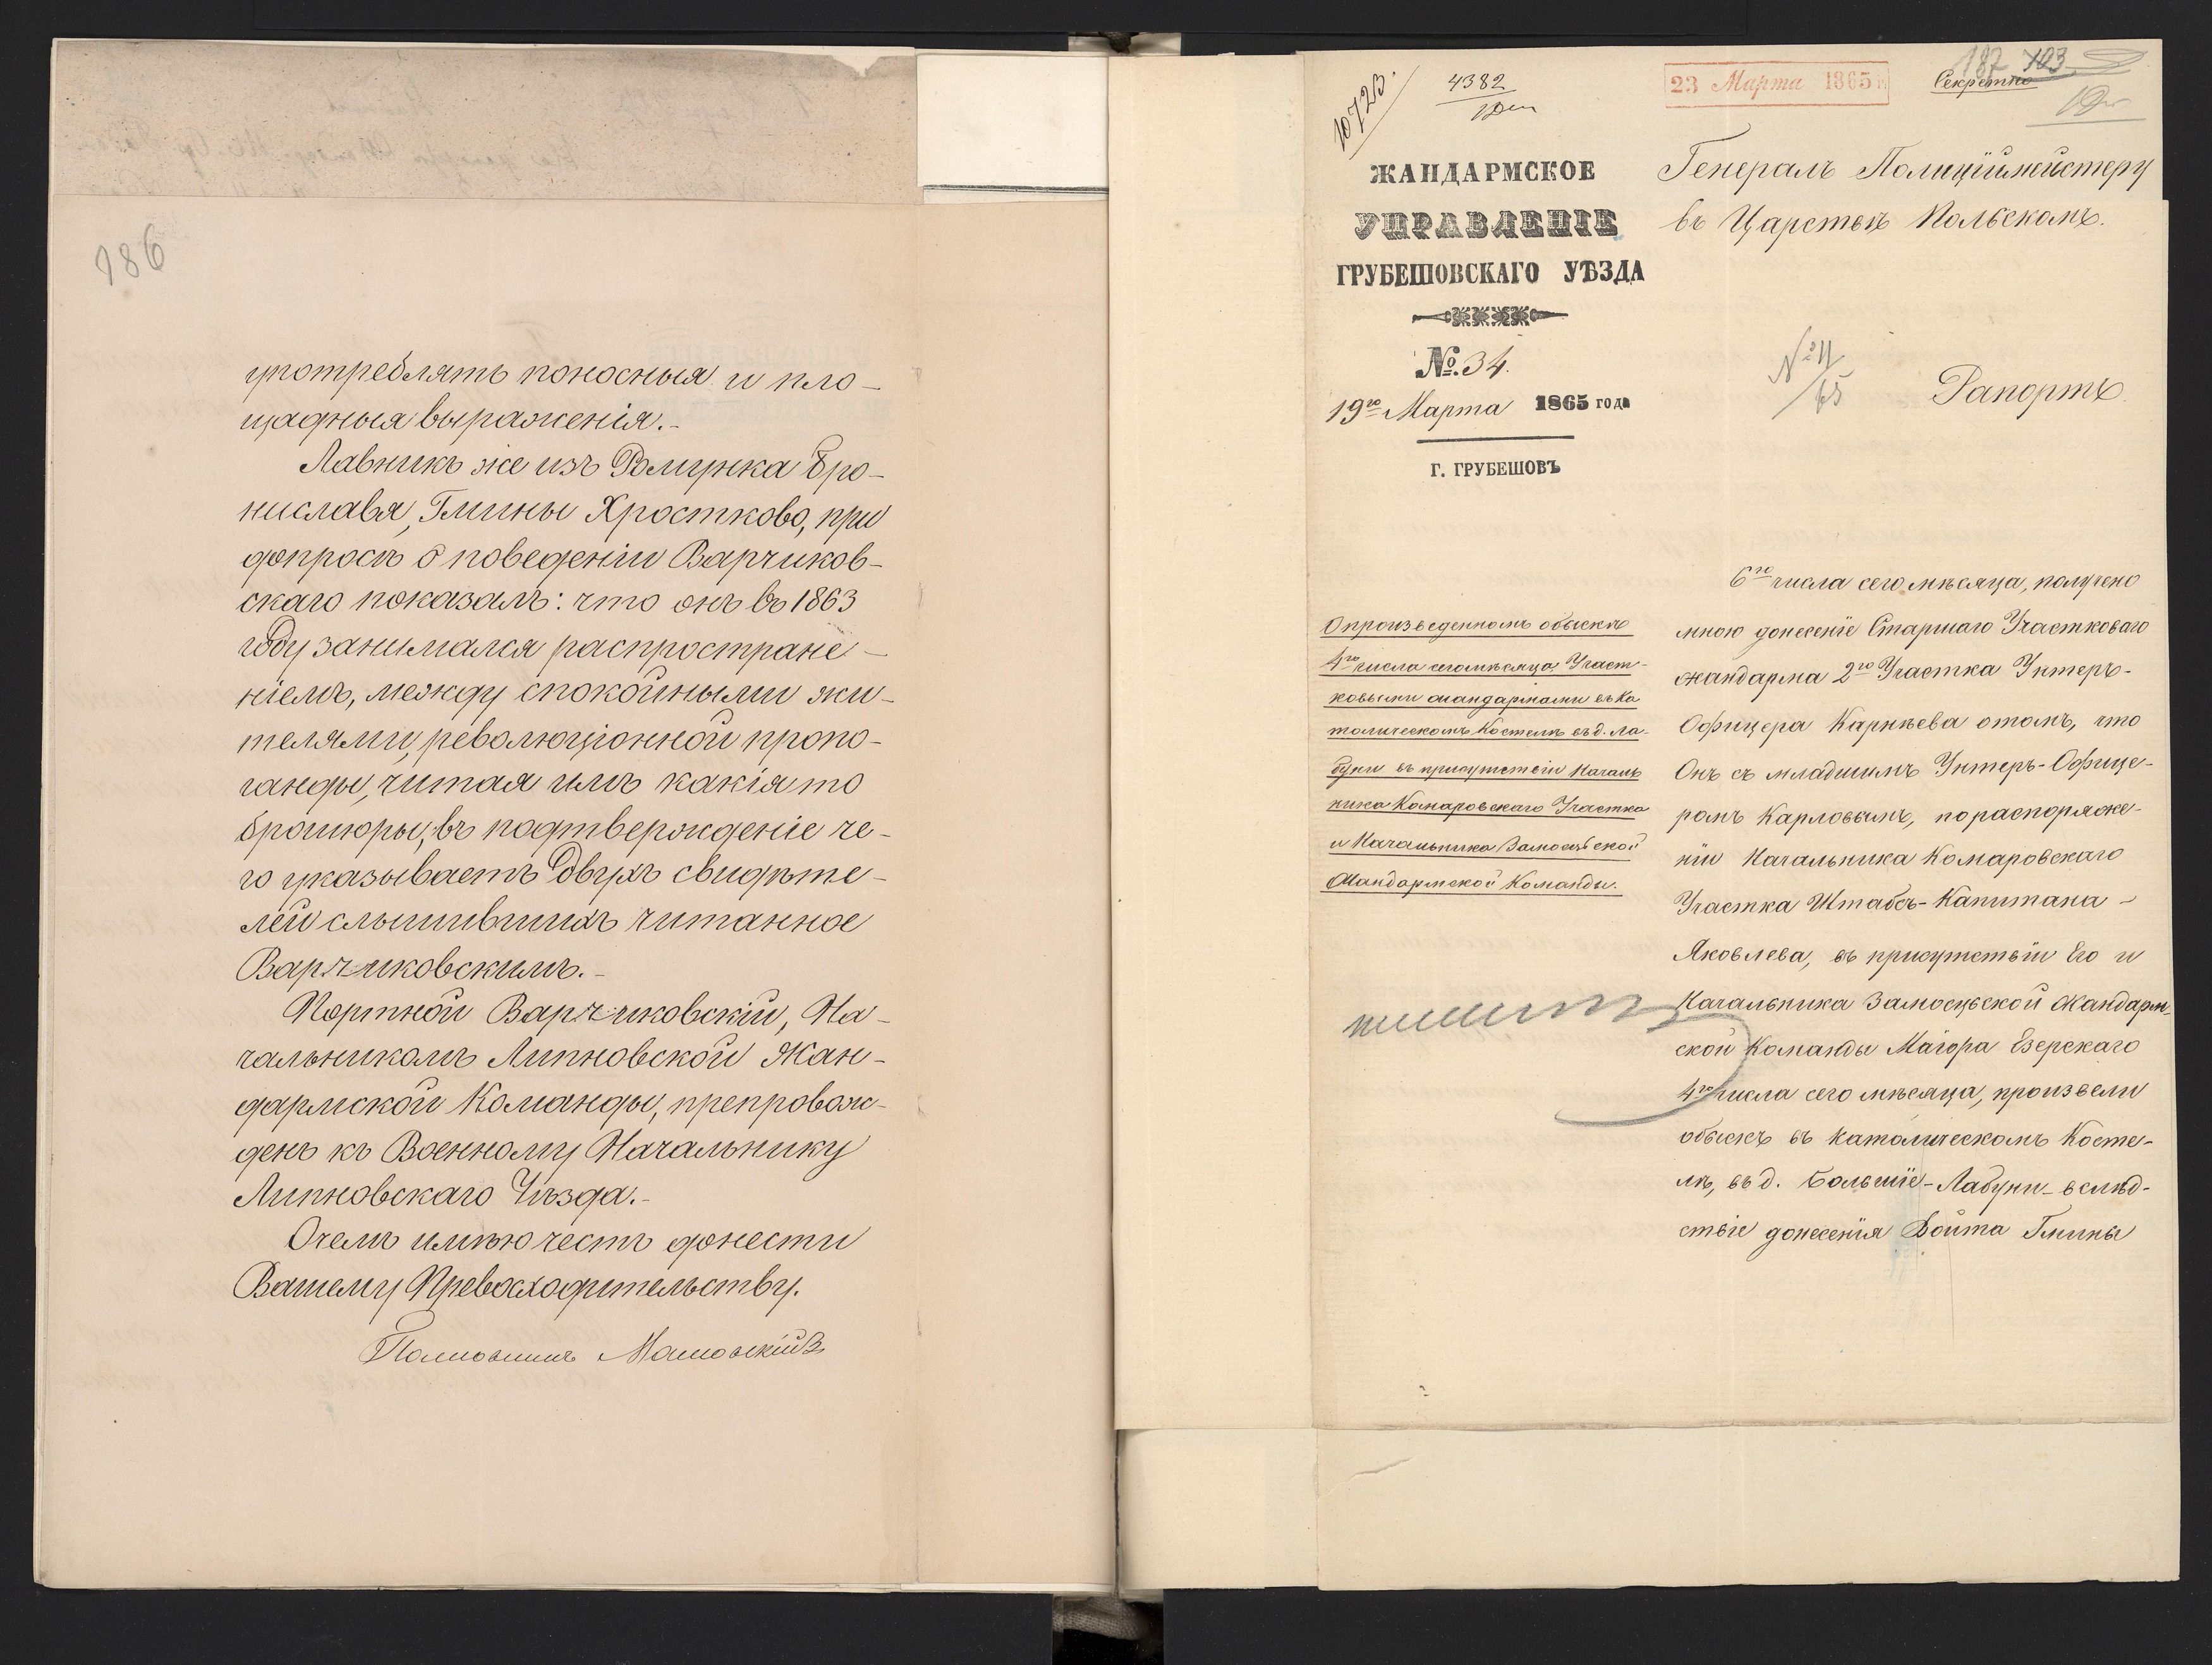 186
употреблять поносныя и пло-
щадныя выраженія.-
Лавникъ же изъ Фолирка Бро-
нислава, Гмины Хростково, при
допросѣ о поведеніи Варчиков-
скаго показалъ: что онъ въ 1863
году занимался распростране-
ніемъ, между спокойными жи-
телями, революціонной пропо-
ганды, читая имъ какія то
брошюры, въ подтвержденіе че-
го указываетъ двухъ свидѣте-
лей слышившихъ читанное
Варчиковскимъ.-
Портной Варчиковскій, На-
чальникомъ Липновской Жан-
дармской Команды, препровож-
денъ къ Военному Начальнику
Липновскаго Уѣзда.-
О чемъ имѣю честь донести
Вашему Превосходительству.
Полковникъ
10723.
4382
23 Марта 1865 г.
187 103
Секретно
ЖАНДАРМСКОЕ
УПРАВЛЕНІЕ
ГРУБЕШОВСКАГО УѢЗДА
№. 34.
19го Марта 1865 года
Г. ГРУБЕШОВЪ
Генералъ Полиціймейстеру
въ Царствѣ Польскомъ.
№ 11/65
Рапортъ
О произведенномъ обыскѣ
4го числа сего мѣсяца Участ-
ковыми жандармами въ Ка
толическомъ Костелѣ въ д. Ла-
буни въ присутствіи Началь
ника Комаровскаго Участка
и Начальника Замосьской
Жандармской Команды.
6го числа сего мѣсяца, получено
мною донесеніе Старшаго Участковаго
жандарма 2го Участка Унтеръ-
Офицера Карнѣева о томъ, что
Онъ съ младшимъ Унтеръ-Офице-
ромъ Карловымъ, по распоряже-
нію Начальника Комаровскаго
Участка Штабсъ-Капитана -
Яковлева, въ присутствіи Его и
Начальника Замосцьской Жандарм-
ской Команды Маіора Езерскаго
4го числа сего мѣсяца, произвели
обыскъ въ католическомъ Косте-
лѣ, въ д. Большіе-Лабуни - вслѣд-
ствіе донесенія Войта Гмины